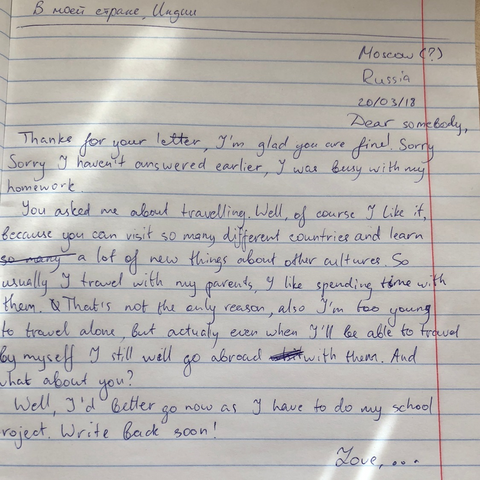 В моей стране, Индии
Moscow (?)
Russia
20/03/18
Dear somebody,
Thanks for your letter, I'm glad you are fine! Sorry
Sorry I haven't answered earlier, I was busy with my
homework.
You asked me about travelling. Well, of course I like it,
because you can visit so many different countries and learn
so many a lot of new things about other cultures. So
usually I travel with my parents, I like spending time with
them. That's not the only reason, also I'm too young
to travel alone, but actually even when I'll be able to travel
by myself I still will go abroad with them. And
what about you?
Well, I'd better go now as I have to do my school
roject. Write back soon!
Love, ...